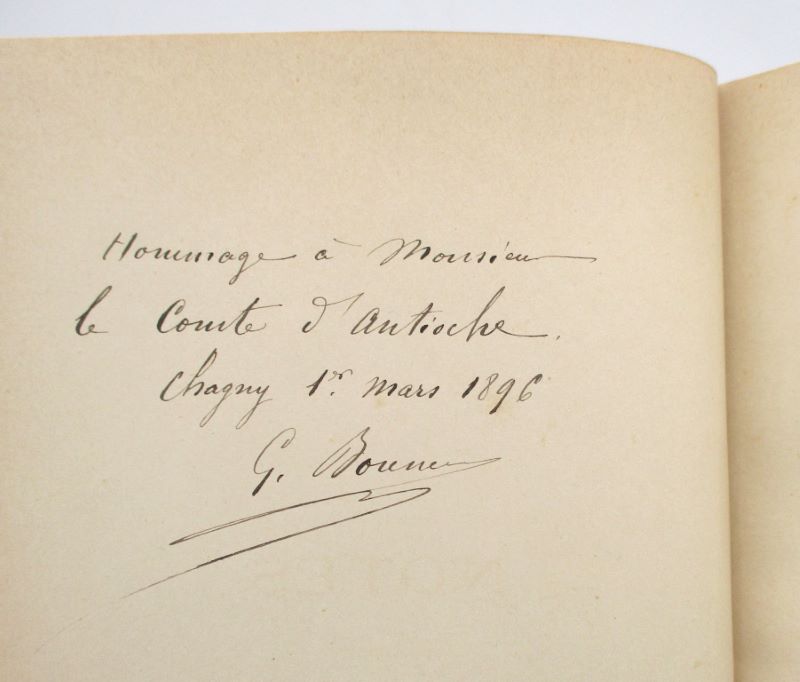 Hommage à Monsieur
le Comte d'Antioche.
Chagny 1er mars 1896
G.